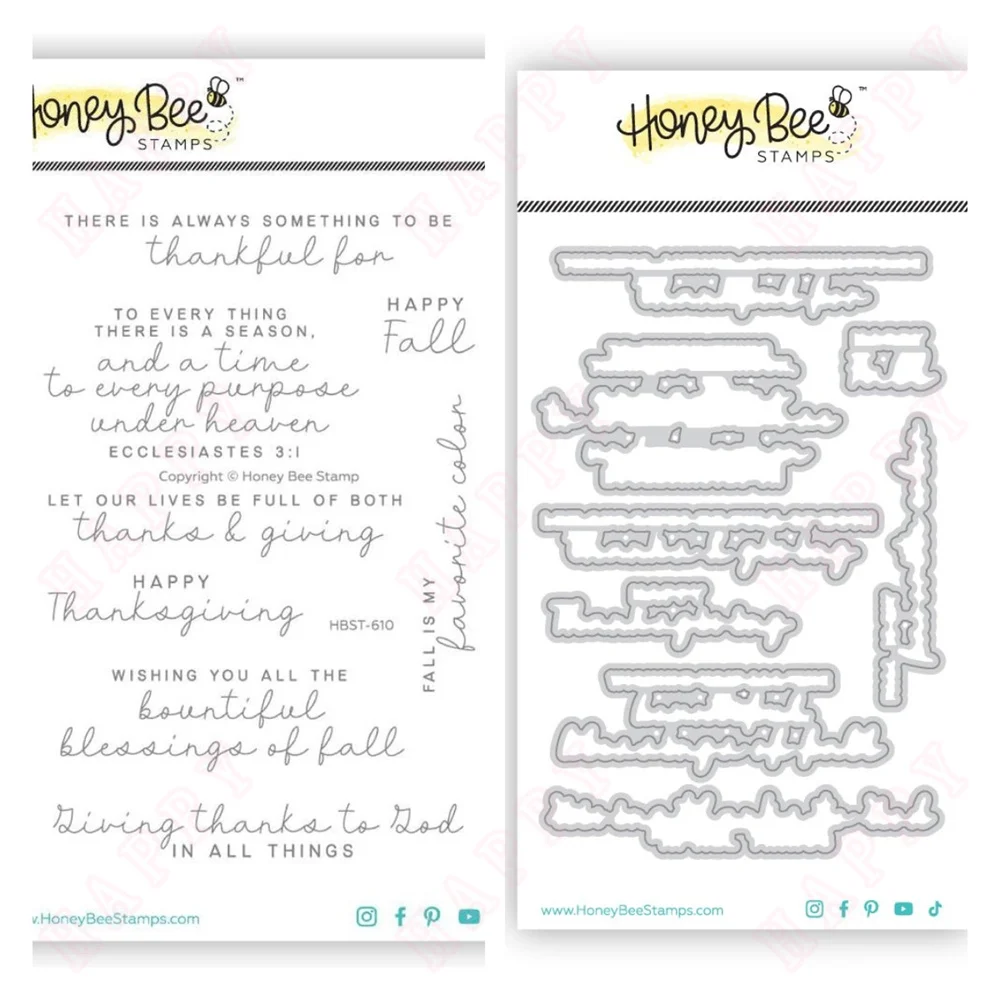 Honey Bee
STAMPS
THERE IS ALWAYS SOMETHING TO BE
thankful for
TO EVERY THING
THERE IS A SEASON,
and a time
to every purpose
under heaven
ECCLESIASTES 3:1
HAPPY
Fall
Copyright © Honey Bee Stamp
LET OUR LIVES BE FULL OF BOTH
thanks & giving
HAPPY
Thanksgiving
HBST-610
FALL IS MY
favorite color
WISHING YOU ALL THE
bountiful
blessings of fall
Giving thanks to God
IN ALL THINGS
w.HoneyBeeStamps.com
Honey Bee™
STAMPS
www.HoneyBeeStamps.com
HAPPY